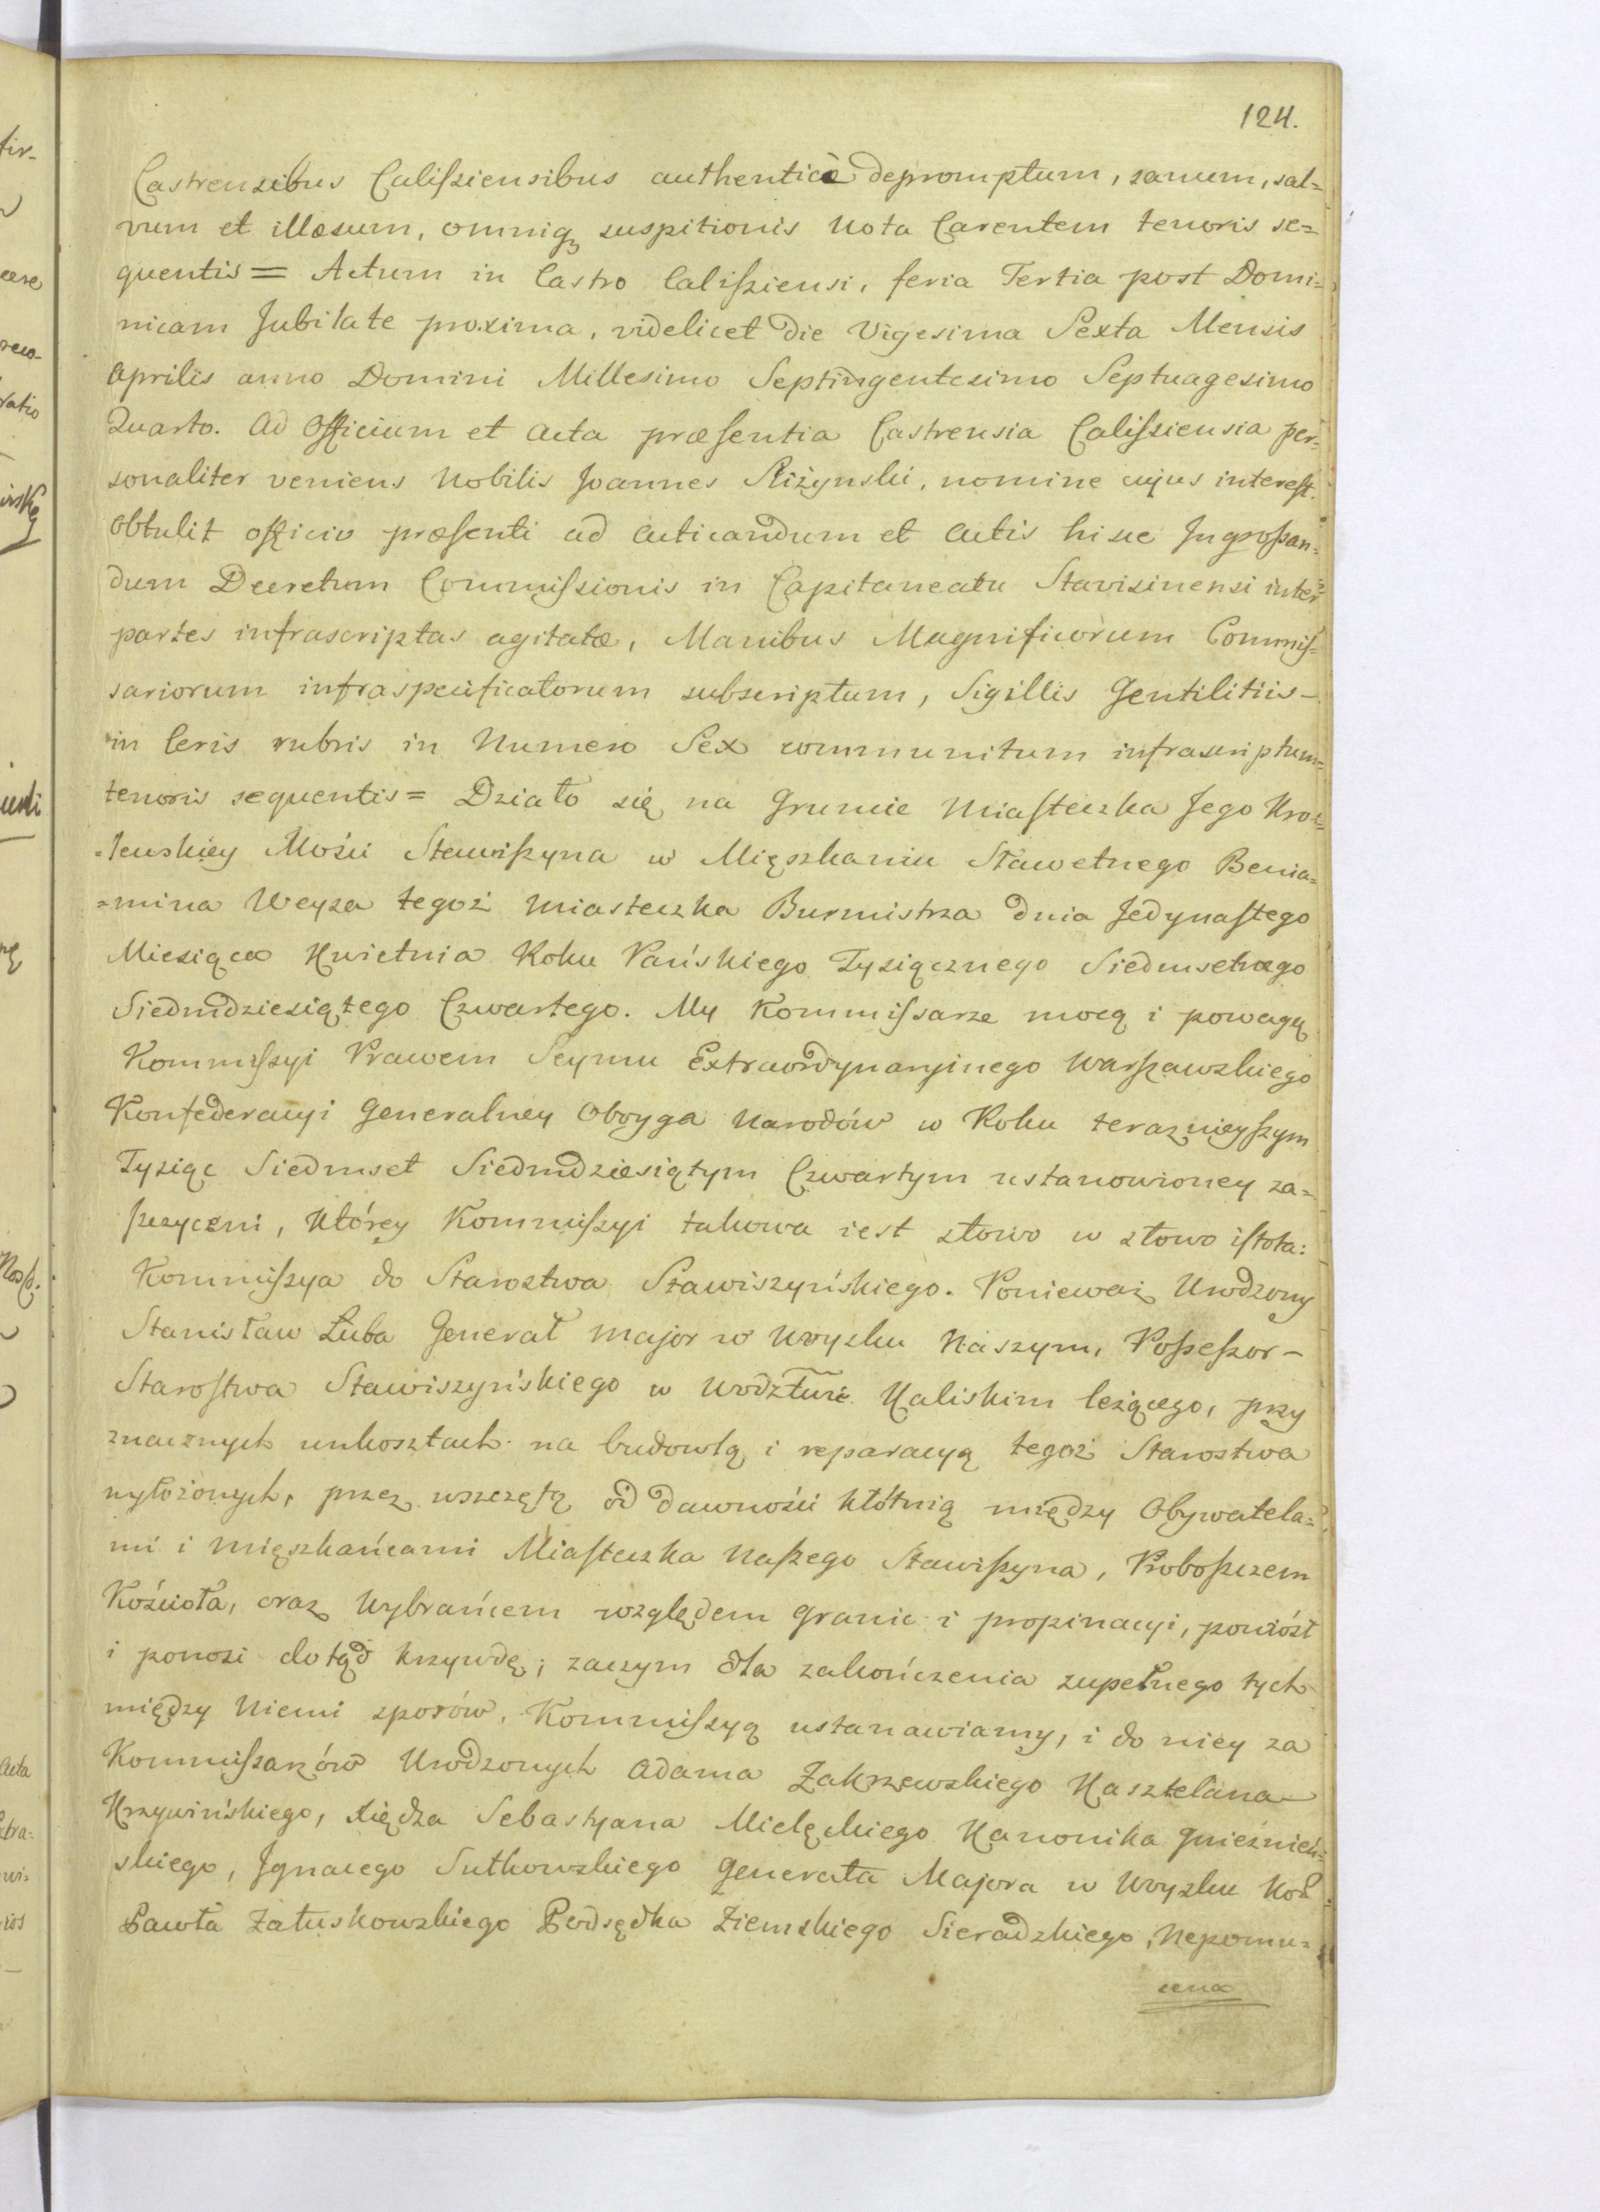 124.
Castrensibus Calißiensibus authenticè depromptum, sanum, sal=
vum et illæsum, omniq₃ suspitionis Nota Carentem tenoris se=
quentis = Actum in Castro Calißiensi, feria Tertia post Domi=
nicam Jubilate proxima, videlicet die Vigesima Sexta Mensis
Aprilis anno Domini Millesimo Septingentesimo Septuagesimo
Quarto. Ad Officium et Acta præsentia Castrensia Calißiensia per=
sonaliter veniens Nobilis Joannes Riżynski, nomine cujus interest.
Obtulit officio præsenti ad acticandum et actis hisce Ingroßan=
dum Decretum Commißionis in Capitaneatu Stavisinensi inter
partes infrascriptas agitatæ, Manibus Magnificorum Commis=
sariorum infraspecificatorum subscriptum, Sigillis Gentilitiis –
in Ceris rubris in Numero Sex communitum infrascriptum
tenoris sequentis = Działo się na Gruncie Miasteczka Jego Kro=
=lewskiey Mości Stawiszyna w Mięszkaniu Sławetnego Benia=
=mina Weysa tegoż Miasteczka Burmistrza dnia Jedynastego
Miesiąca Kwietnia Roku Pańskiego Tysiącznego Siedmsetnego
Siedmdziesiątego Czwartego. My Kommissarze mocą i powagą
Kommissyi Prawem Seymu Extraordynaryinego Warszawskiego
Konfederacyi Generalney Oboyga Narodów w Roku teraznieyszym
Tysiąc Siedmset Siedmdziesiątym Czwartym ustanowioney za=
szczyceni, Którey Kommissyi takowa iest słowo w słowo istota:
Kommissya do Starostwa Stawiszyńskiego. Ponieważ Urodzony
Stanisław Łuba Generał Major w Woysku Naszym, Poßeßor –
Starostwa Stawiszyńskiego w Wodztwie Kaliskim leżącego, przy
znacznych unkosztach na budowlą i reparacyą tegoż Starostwa
wyłożonych, przez wszczętą od dawności kłótnią między Obywatela=
mi i mięszkańcami Miasteczka Naszego Stawiszyna, Proboszczem
Kościoła, oraz Wybrańcem względem granic i propinacyi, poniósł
i ponosi dotąd krzywdę; zaczym dla zakończenia zupełnego tych
między Niemi sporów, Kommissyą ustanawiamy, i do niey za
Kommissarzów Urodzonych Adama Zakrzewskiego Kasztelana
Krzywińskiego, Xiędza Sebastyana Mielęckiego Kanonika Gnieznień=
skiego, Ignacego Sutkowskiego Generała Majora w Woysku Kor
Pawła Załuskowskiego Podsędka Ziemskiego Sieradzkiego, Nepomu=
cena